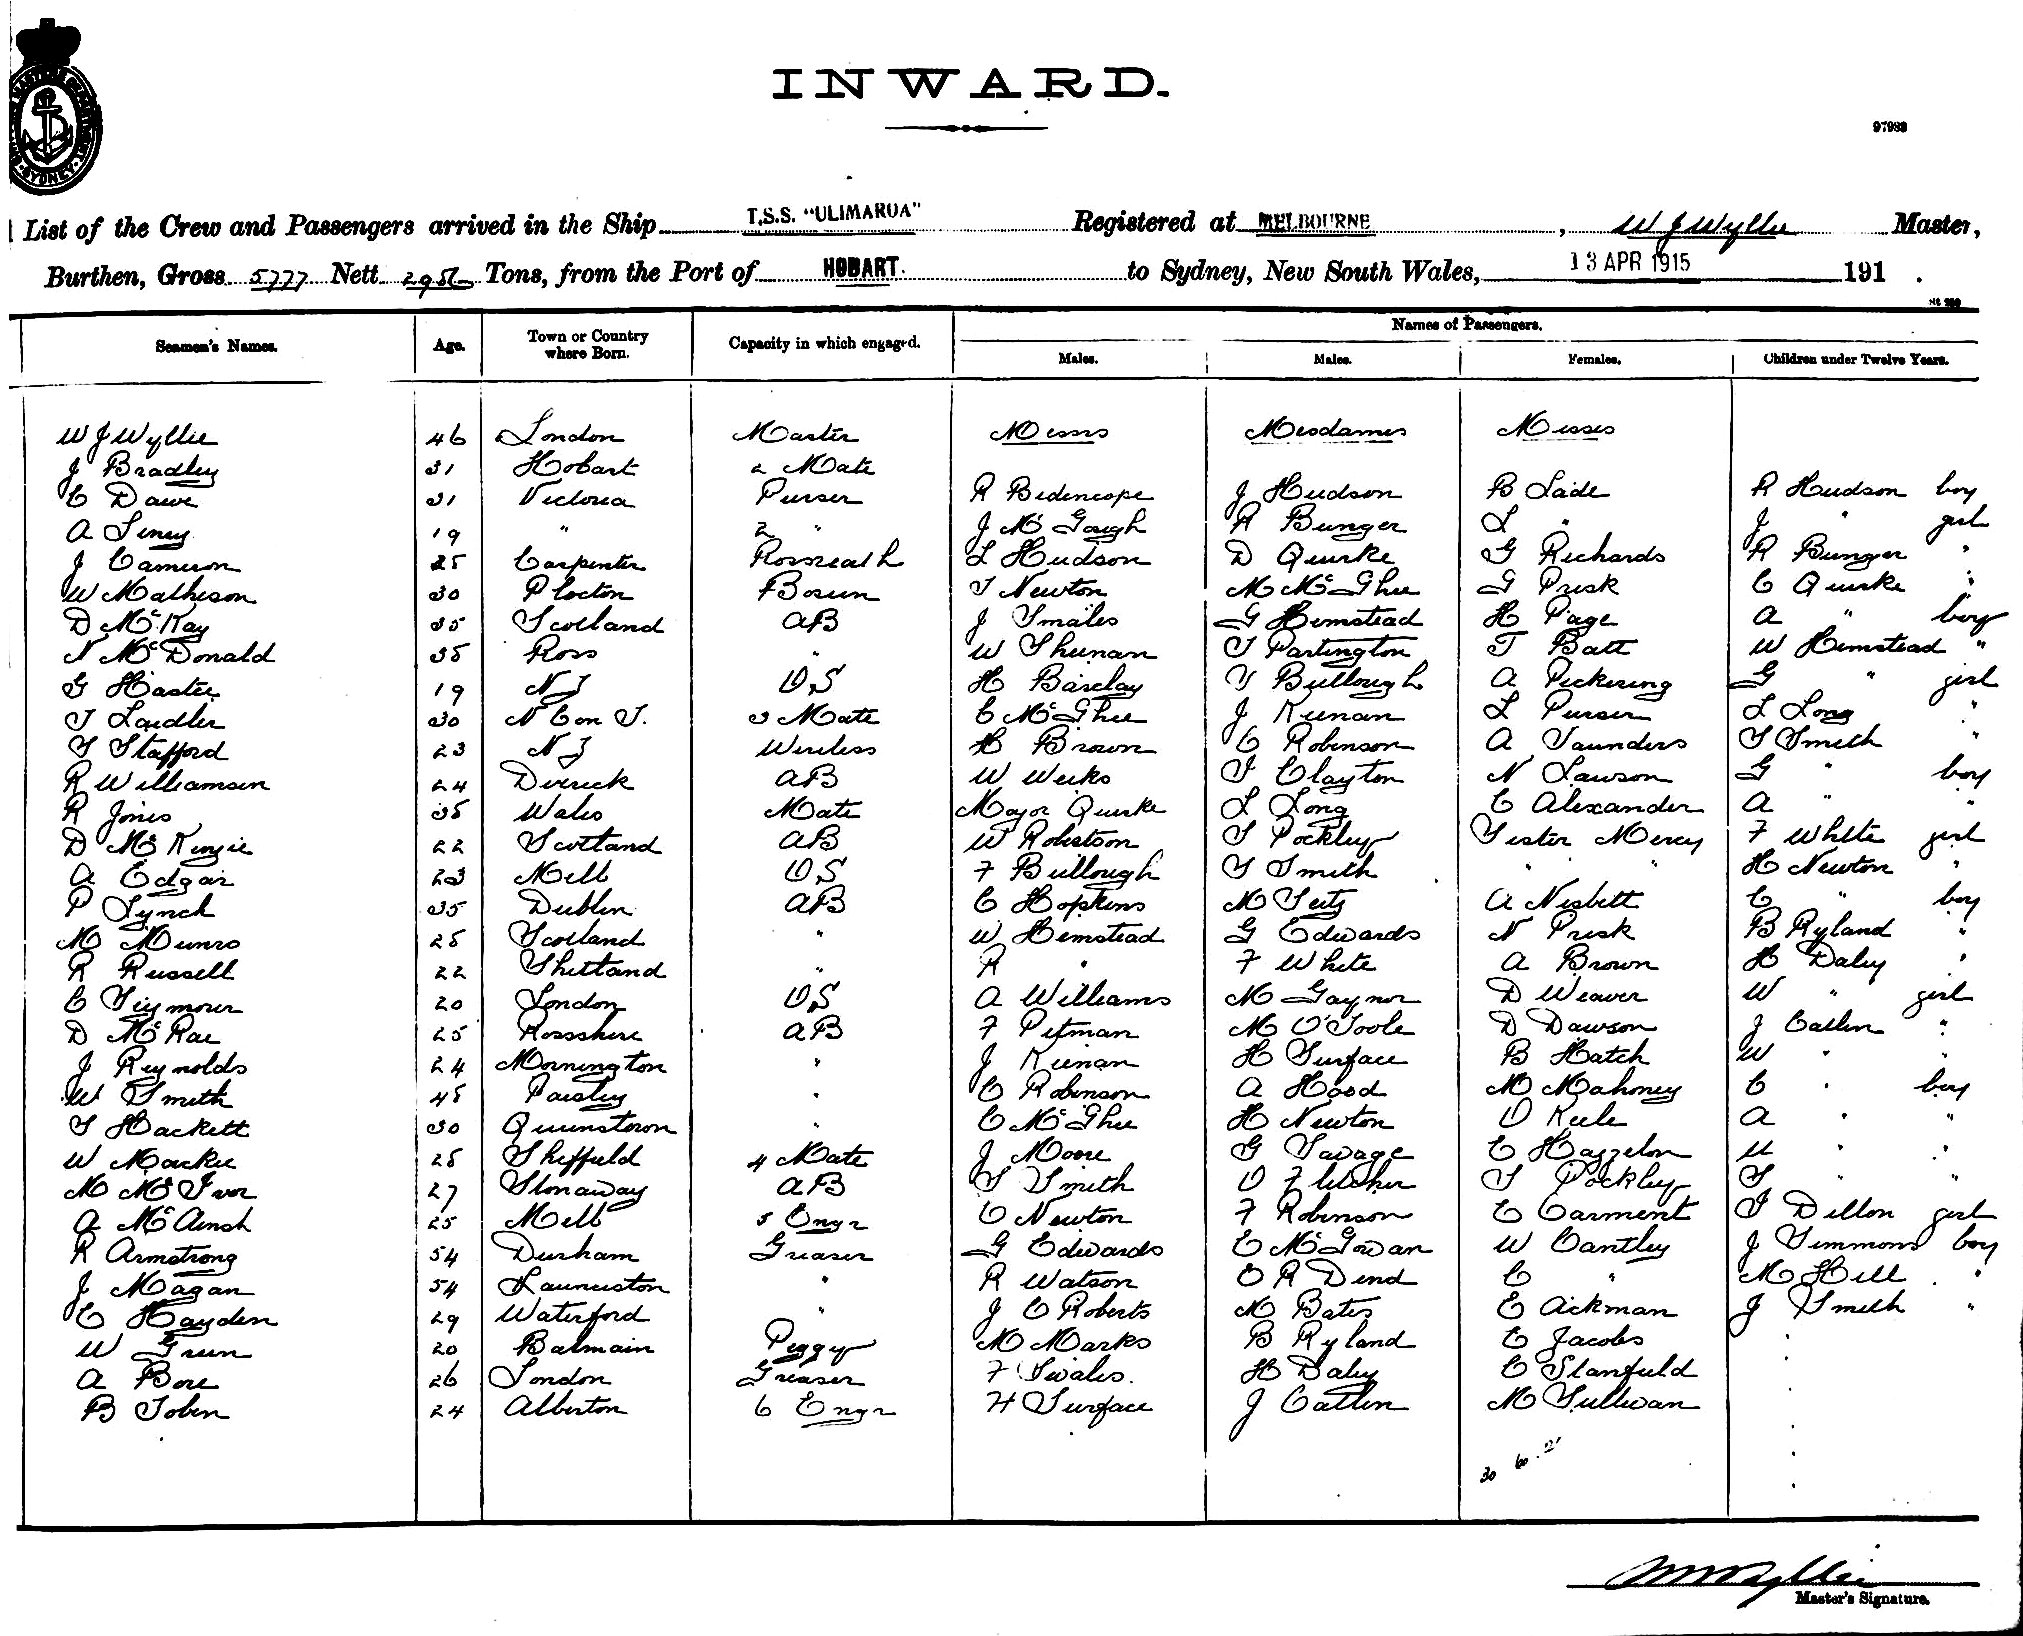 INWARD.
97989
SYDNEY
List of the Crew and Passengers arrived in the Ship T.S.S. "ULIMAROA" Registered at MELBOURNE, W J Wyllie Master,
Burthen, Gross 5777 Nett Tons, from the Port of HOBART. to Sydney, New South Wales, 13 APR 1915 191 .
Seamen's Names. Age. Town or Country where Born. Capacity in which engaged. Names of Passengers.
Males. Males. Females. Children under Twelve Years.
W J Wyllie 46 London Master Messrs Mesdames Misses
J Bradley 31 Hobart 2 Mate
C Dawe 31 Victoria Purser R Bidencope J Hudson B Lade R Hudson boy
A Siney 19 " 2 " J McGough R Bunger L " J " girl
J Cameron 25 Carpenter Rossneath L Hudson D Quirke G Richards R Bunger "
W Mathison 30 Plocton Bosun T Newton M McGhee G Prisk C Quirke "
D McKay 35 Scotland AB J Smales G Himstead H Page A " boy
N McDonald 35 Ross " W Sheenan T Partington T Batt W Himstead "
G Hastie 19 NZ OS H Barclay T Bullough A Pickering G " girl
T Laidler 30 N Con T. 3 Mate C McGhee J Keenan L Purser L Long "
S Stafford 23 NZ Wireless H Brown C Robinson A Saunders S Smith "
R Williamson 24 AB W Weeks T Clayton N Lawson G " boy
R Jones 35 Wales Mate Major Quirke L Long C Alexander A " "
D McKenzie 22 Scotland AB W Robertson S Pockley Sister Mercy F White girl
A Edgar 23 Melb OS F Bullough S Smith " " H Newton "
P Lynch 35 Dublin AB C Hopkins M Seitz A Nesbitt C " boy
M Munro 25 Scotland " W Himstead G Edwards N Prisk B Ryland "
R Russell 22 Shetland " R " F White A Brown H Daley "
C Seymour 20 London OS A Williams M Gaynor D Weaver W " girl
D McRae 25 Rossshire AB F Pitman M O'Toole D Dawson J Catlin "
J Reynolds 24 Mornington " J Keenan H Surface B Hatch W " "
W Smith 45 Paisley " C Robinson A Hood M Mahoney C " boy
S Hackett 30 Queenstown " C McGhee H Newton O Keele A " "
W Mackie 28 Sheffield 4 Mate J Moore G Savage E Hazzelon " "
M McIvor 27 Stonaway AB S Smith O Fletcher S Pockley S " "
A McAinsh 25 Melb 5 Engr C Newton F Robinson E Carment I Dillon girl
R Armstrong 54 Durham Greaser G Edwards E McGowan W Cantley J Simmons boy
J Magan 54 Launceston " R Watson E R Dind C " M Hill "
C Hayden 29 Waterford " J C Roberts M Bates E Ackman J Smith "
W Green 20 Balmain Peggy M Marks B Ryland E Jacobs
A Bore 26 London Greaser F Swales. H Daley C Stanfield
B Tobin 24 Alberton 6 Engr H Surface J Catlin M Sullivan
30 60 21
Master's Signature.